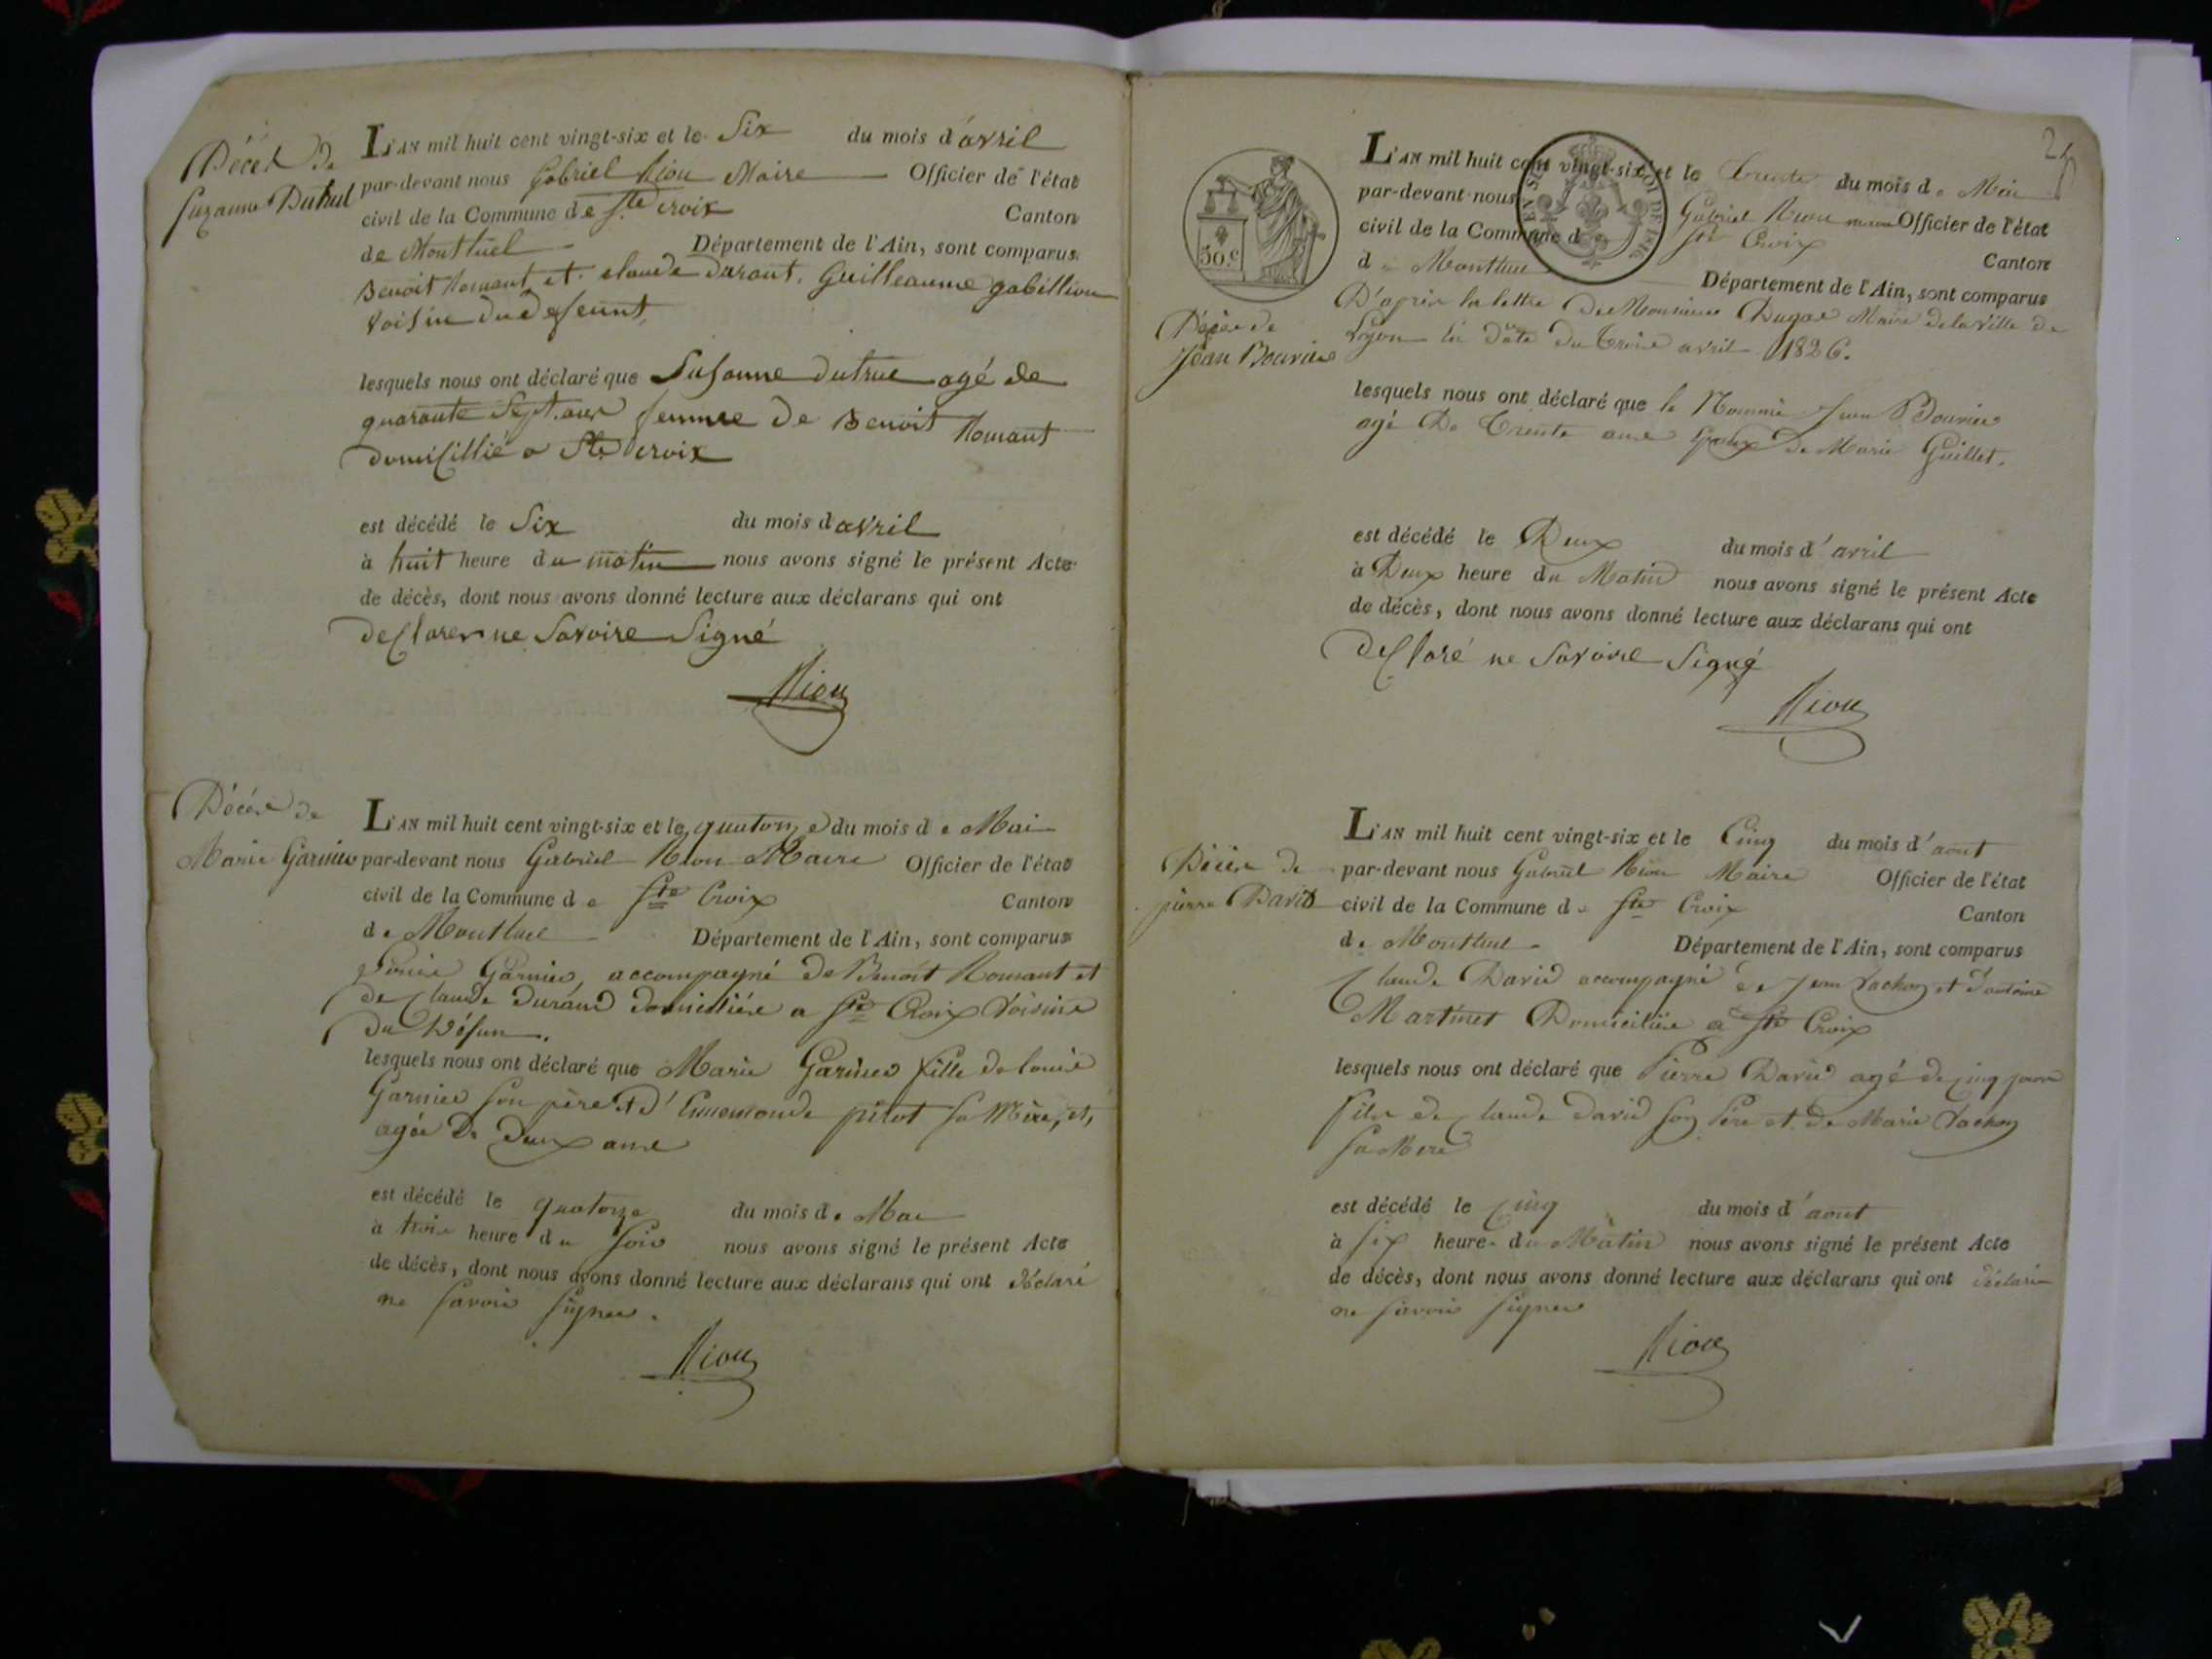 Décès de
Suzanne Dutrut
L'AN mil huit cent vingt-six et le Six du mois d'avril
par-devant nous Gabriel Riou Maire Officier de l'état
civil de la Commune de Ste croix Canton
de Montluel Département de l'Ain, sont comparus
Benoit Romant et claude durant, Guilleaume gabillion
voisin du defeunt,
lesquels nous ont déclaré que Susanne dutrue agé de
quarante Sept ans femme de Benoit Romant
domicillié a Ste croix
est décédé le Six du mois d avril
à huit heure du matin nous avons signé le présent Acte
de décès, dont nous avons donné lecture aux déclarans qui ont
declarer ne Savoire Signé
Riou
Décès de
Marie Garnier
L'AN mil huit cent vingt-six et le quatorze du mois de Mai
par-devant nous Gabriel Riou Maire Officier de l'état
civil de la Commune de Ste Croix Canton
de Montluel Département de l'Ain, sont comparus
Garnier, accompagné de Benoit Romant et
de Claude durand domiciliés a Ste Croix voisins
du Défun.
lesquels nous ont déclaré que Marie Garnier fille de louis
Garnier son père et d'Ennemonde pitot sa Mère, et,
agée de deux ans
est décédé le quatorze du mois de Mai
à trois heure du soir nous avons signé le présent Acte
de décès, dont nous avons donné lecture aux déclarans qui ont déclaré
ne savoir signer.
Riou
50.c
EN SUS
LOI DE 1816
Décès de
Jean Bouvier
L'AN mil huit cent vingt-six et le trente du mois de Mai
par-devant nous Gabriel Riou maire Officier de l'état
civil de la Commune d Ste Croix Canton
d Montluel Département de l'Ain, sont comparus
D'après la lettre de Monsieur Dugas Maire de la ville de
Lyon en date du trois avril 1826.
lesquels nous ont déclaré que le Nommé Jean Bouvier
agé De trente ans Epoux de Marie Guillet.
est décédé le Deux du mois d'avril
à Deux heure du Matin nous avons signé le présent Acte
de décès, dont nous avons donné lecture aux déclarans qui ont
declaré ne Savoire Signé
Riou
Décès de
pierre David
L'AN mil huit cent vingt-six et le Cinq du mois d'aout
par-devant nous Gabriel Riou Maire Officier de l'état
civil de la Commune de Ste Croix Canton
de Montluel Département de l'Ain, sont comparus
Claude David accompagné de jean Vachon et d'antoine
Martinet Domiciliés a Ste Croix
lesquels nous ont déclaré que Pierre David agé de cinq jours
fils de Claude David son Père et de Marie Vachon
sa Mere
est décédé le cinq du mois d'aout
à six heure du Matin nous avons signé le présent Acte
de décès, dont nous avons donné lecture aux déclarans qui ont déclaré
ne savoir signer
Riou